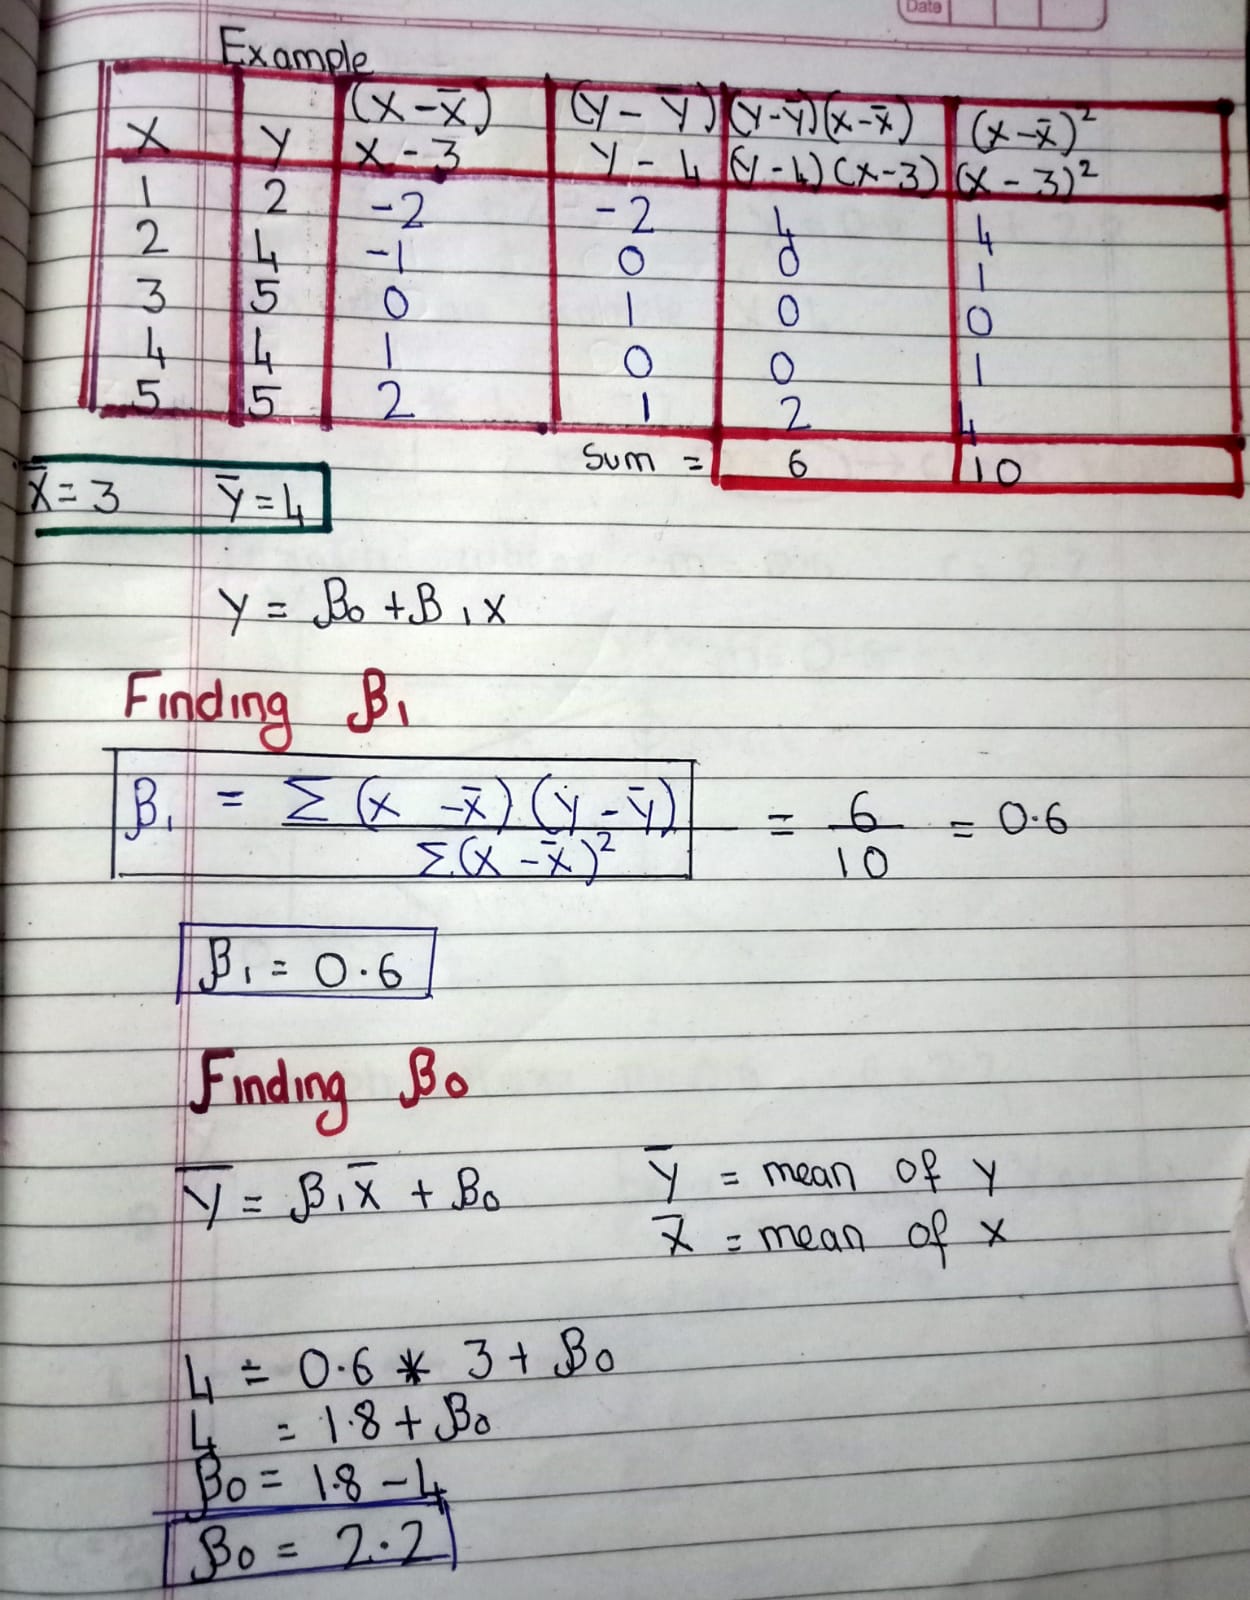 Date
Example
(x-x̄) (y-ȳ) (y-ȳ)(x-x̄) (x-x̄)²
x y x-3 y-4 (y-4)(x-3) (x-3)²
1 2 -2 -2 4 4
2 4 -1 0 0 1
3 5 0 1 0 0
4 4 1 0 0 1
5 5 2 1 2 4
Sum = 6 10
x̄=3 ȳ=4
y = β₀ + β₁x
Finding β₁
β₁ = Σ(x-x̄)(y-ȳ) / Σ(x-x̄)² = 6/10 = 0.6
β₁ = 0.6
Finding β₀
ȳ = β₁x̄ + β₀ ȳ = mean of y
x̄ = mean of x
4 = 0.6 * 3 + β₀
4 = 1.8 + β₀
β₀ = 1.8 - 4
β₀ = 2.2